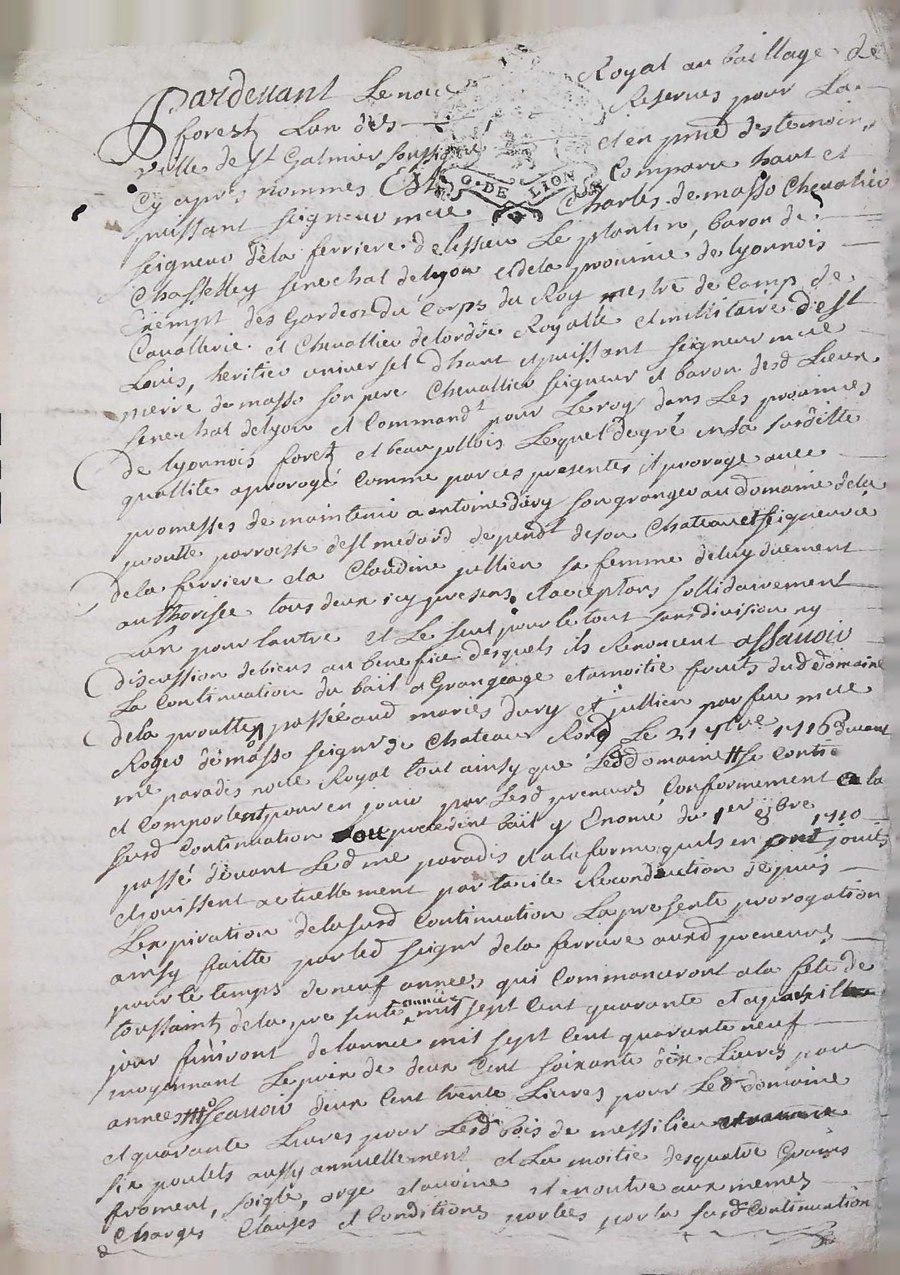 Pardevant Le no.re Royal au bailliage de
forestz L'un des Reservés pour La
ville de St Galmier soussigné et en pnce des temoins
Cy apres nommés Est Comparu haut et
G. DE LION
puissant seigneur mre Charles de masso Chevallier
seigneur de la ferriere delissieu Le plantin, baron de
Chasselley senechal de lyon et de la province de lyonnois
Exempt des Gardes du Corps du Roy mestre de Camp de
Cavallerie et Chevallier de lordre Royalle et militaire de St
Louis, heritier universel d'haut et puissant seigneur mre
pierre de masso son pere Chevallier seigneur et baron desd Lieux
senechal de lyon et Commandt pour Le roy dans Les provinces
de lyonnois forestz et beaujollois Lequel de gré en sa susditte
quallité a prorogé Comme par ces presentes il proroge avec
promesses de maintenir a antoine dury son granger au domaine de la
proutte parroisse de St medard dependt de son Chateau et seigneurie
de la ferriere et a Claudine jullien sa femme de luy duement
authorisée tous deux icy presens et acceptans sollidairement
L'un pour lautre et Le seul pour le tout sans division ny
discussion de biens au benefice desquels ils Renoncent assavoir
La Continuation du bail a Grangeage et a moitié fruits dud domaine
de la proutte passée aud mariés dury et jullien par feu mre
Roger de masso seignr de Chateau Rond Le 21 7bre 1716 devant
me paradis no.re Royal tout ainsy que Led domaine se contient
et comporte et pour en jouir par Lesd preneurs Conformement a la
susd Continuation ou precedent bail y Enoncé du 1er 8bre 1710
passé devant Led me paradis et a la forme quils en ont jouit
et jouissent actuellement par tacite Reconduction depuis
L'expiration de la susd Continuation La presente prorogation
ainsy faitte par led seignr de la ferriere ausd preneurs
pour le temps de neuf années qui Commanceront a la fete de
toussaintz de la presente année mil sept cent quarante et a pareil
jour finiront de lannée mil sept cent quarante neuf
moyennant Le prix de deux cent soixante dix Livres par
années Scavoir deux cent trente Livres pour Led domaine
et quarante Livres pour Lesd bois de messilieu
six poulets aussy annuellement et La moitié des quatre Grains
froment, soigle, orge et avoine et en outre aux memes
Charges Clauses et Conditions portées par la susd Continuation